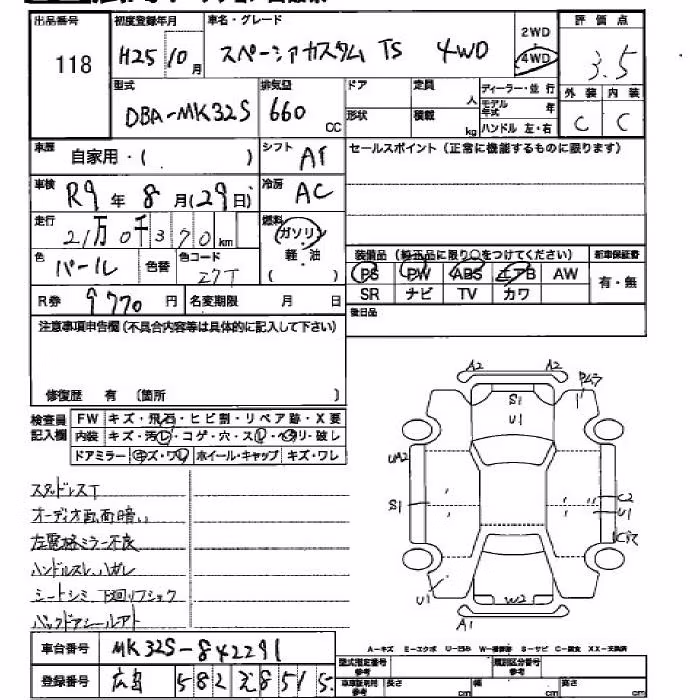 出品番号 初度登録年月 車名・グレード 評価点
118 H25 10月 スペーシアカスタム TS 4WD 2WD 4WD 3.5
型式 排気量 ドア 定員 人 ディーラー・並行 外装 内装
DBA-MK32S 660 CC 形状 積載 kg モデル年式 年 ハンドル 左・右 C C
車歴 自家用・( ) シフト AT セールスポイント(正常に機能するものに限ります)
車検 R9年 8月(29日) 冷房 AC
走行 21万0千370km 燃料 ガソリン
色 パール 色替 色コード Z7T 軽・油 ( )
装備品(純正品に限り○をつけてください) 新車保証書
PS PW ABS エアB AW 有・無
SR ナビ TV カワ
R券 9770円 名変期限 月 日 後日品
注意事項申告欄(不具合内容等は具体的に記入して下さい)
修復歴 有 (箇所 )
検査員記入欄 FW キズ・飛石・ヒビ割・リペア跡・X要
内装 キズ・汚レ・コゲ・穴・スレ・ヘタリ・破レ
ドアミラー キズ・ワレ ホイール・キャップ キズ・ワレ
スタッドレスT
オーディオ画面暗い
左電格ミラー不良
ハンドルスレ、ハガレ
シートシミ、下廻リフショク
バックドアシールアト
A2 A2
S1
U1
UA2
S1
C2
U1
U1
W2
A1
A-キズ E-エクボ U-凹み W-補修跡 S-サビ C-腐食 XX-交換済
車台番号 MK32S-842291
型式指定番号 参考 類別区分番号 参考
登録番号 広島 582 え 8515
車庫証明用 参考 長さ cm 幅 cm 高さ cm